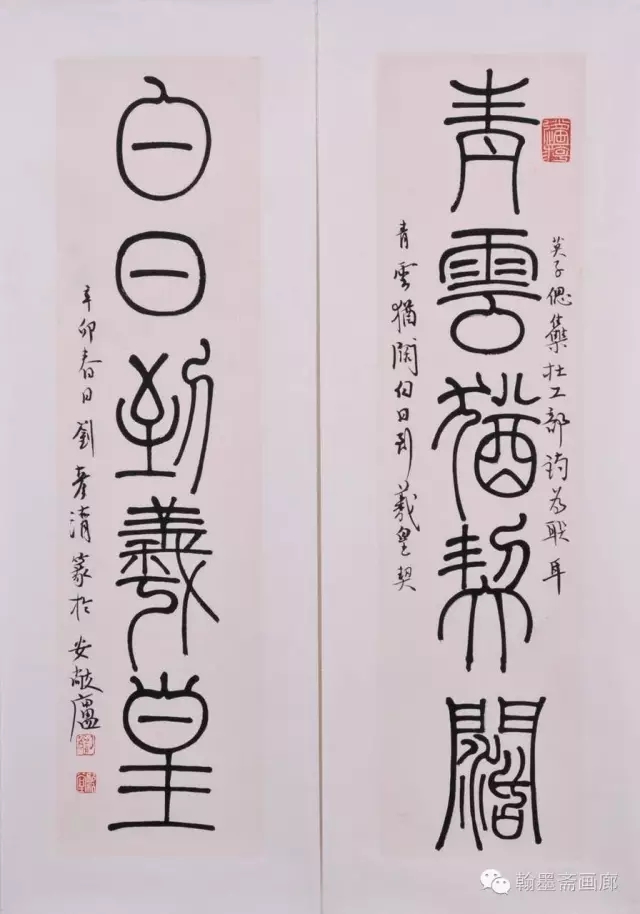 青雲猶契闊
莫子偲集杜工部詩為联耳
青雲猶闊白日到羲皇契
白日到羲皇
辛卯春日劉彦清篆於安敝廬
翰墨斋画廊